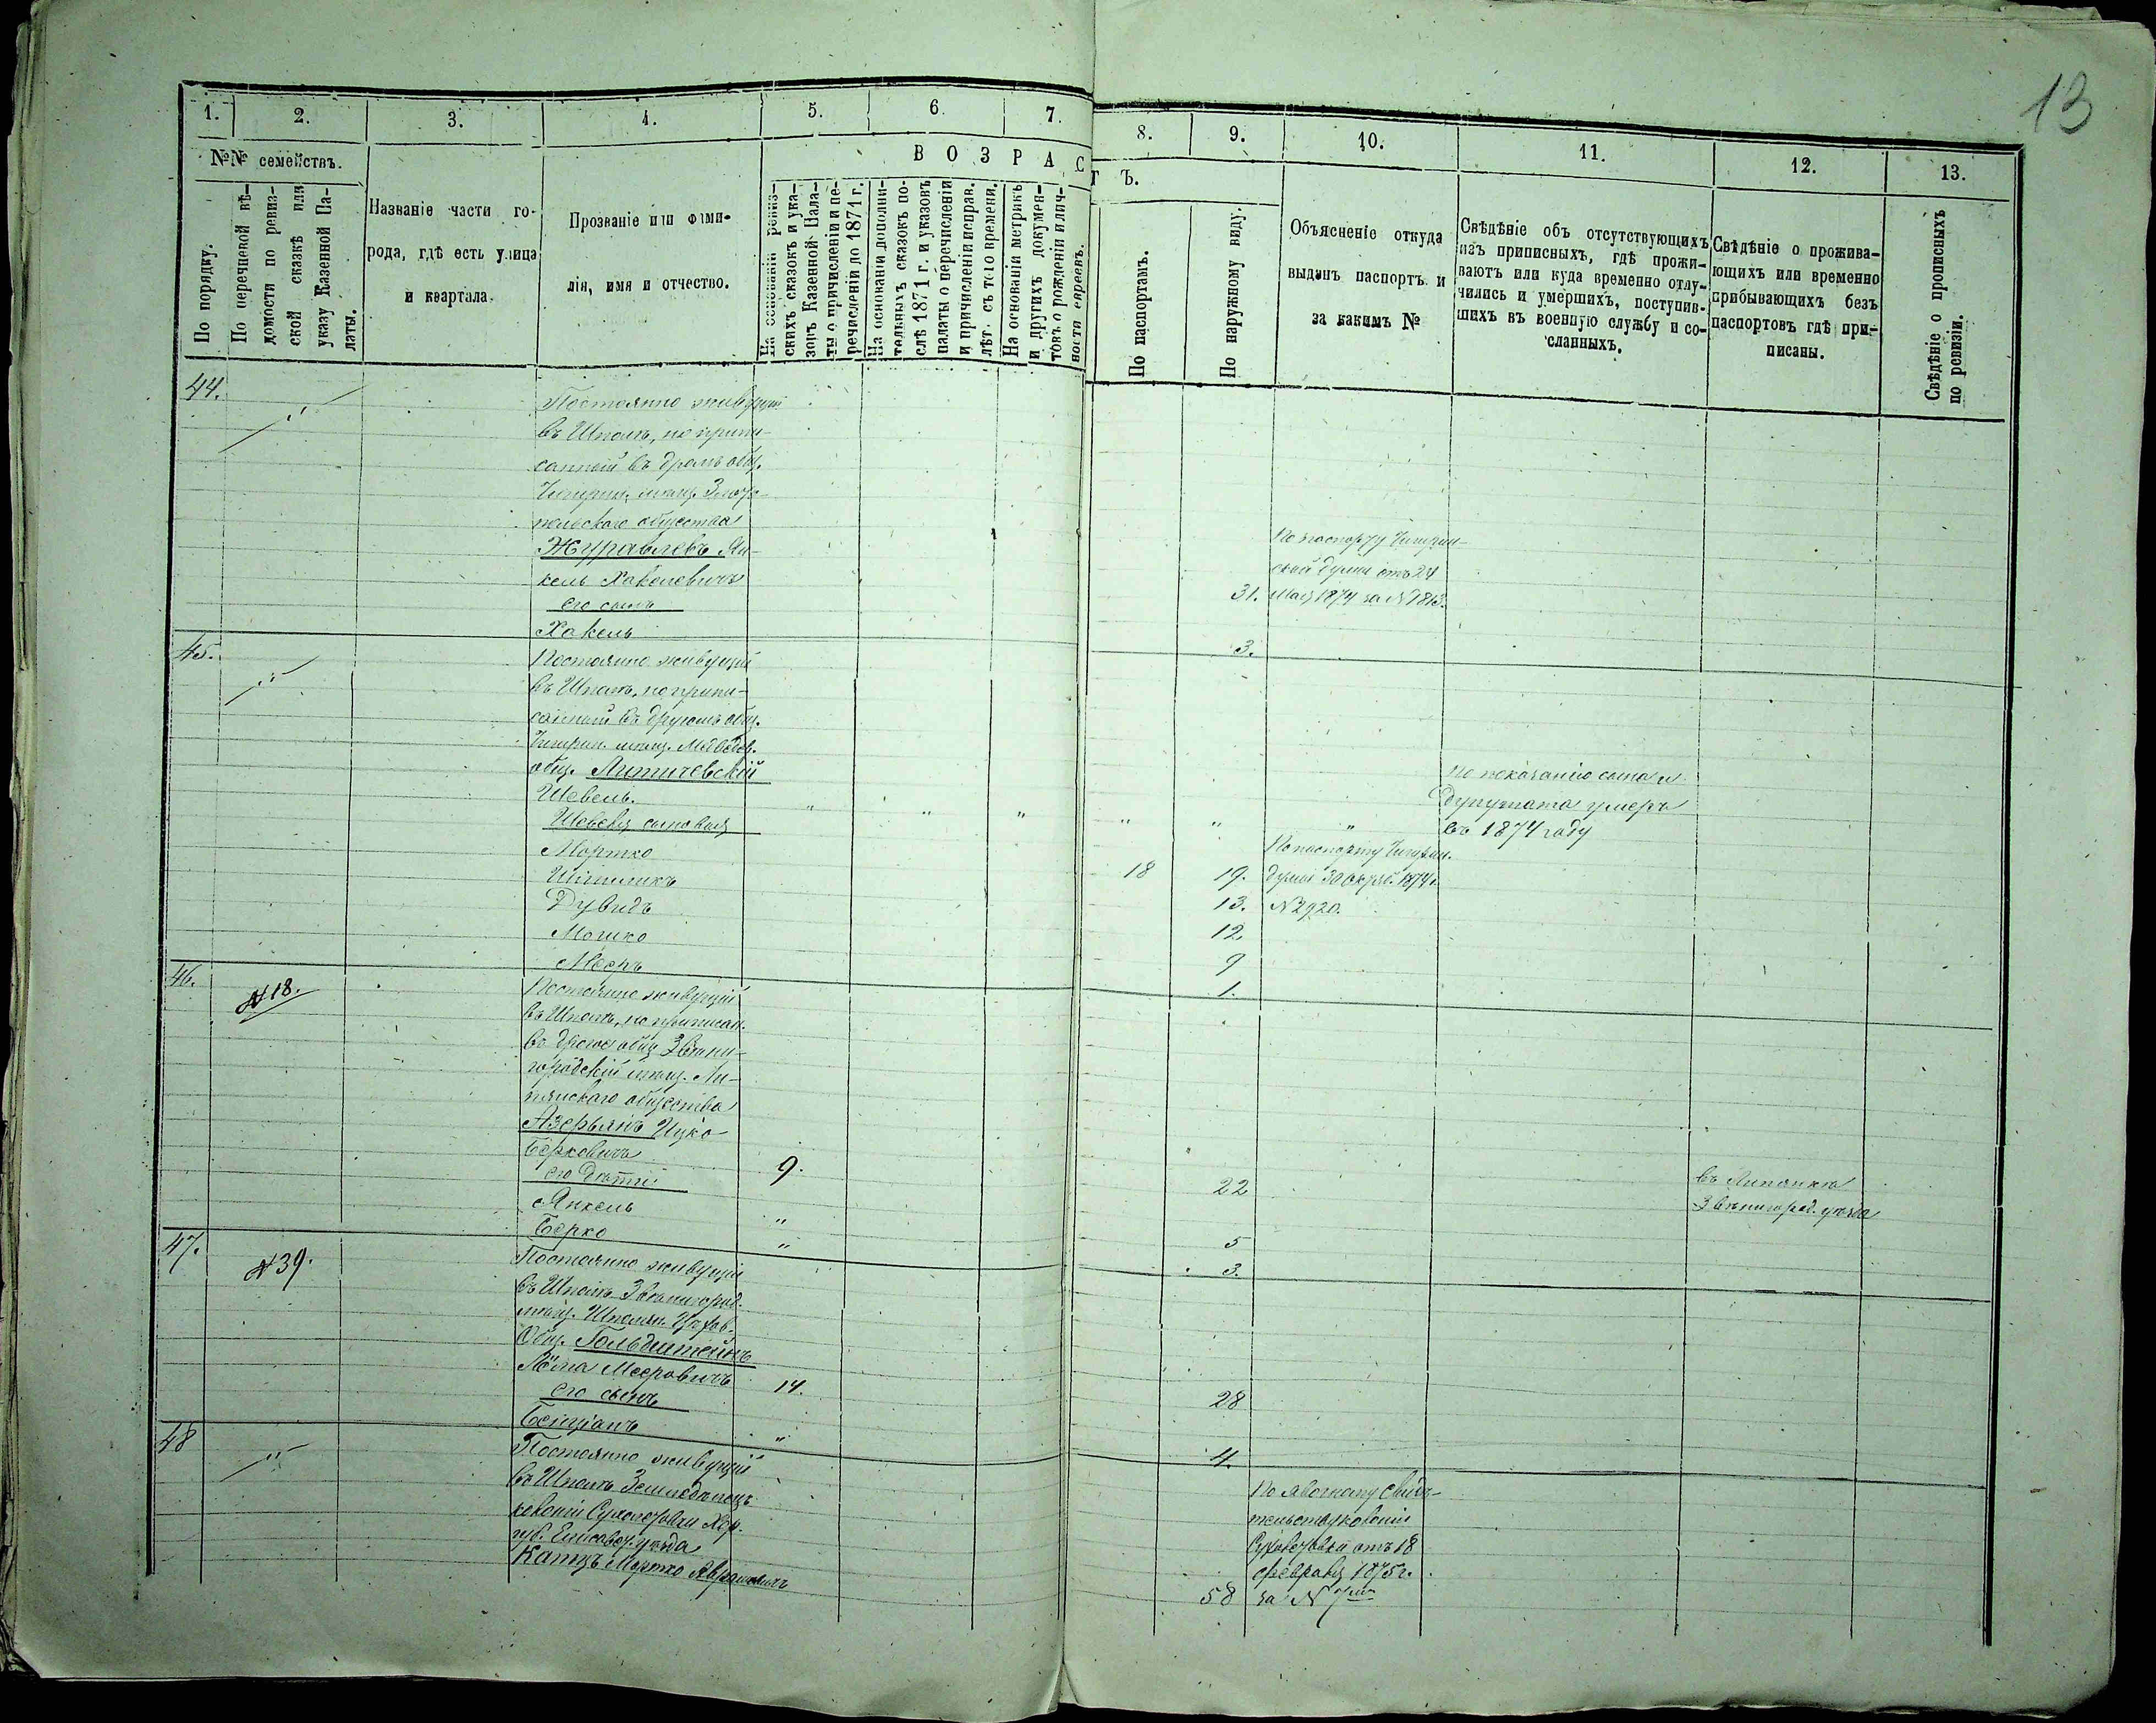 13
1.
2.
3.
4.
5.
6.
7.
8.
9.
10.
11.
12.
13.
№№ семействъ.
ВОЗРАСТЪ.
По порядку.
По перечневой вѣ-
домости по ревиз-
ской сказкѣ или
указу Казенной Па-
латы.
Названіе части го-
рода, гдѣ есть улица
и квартала.
Прозваніе или фами-
лія, имя и отчество.
На основаніи ревиз-
скихъ сказокъ и ука-
зовъ Казенной Пала-
ты о причисленіи и пе-
речисленіи до 1871 г.
На основаніи дополни-
тельныхъ сказокъ по-
слѣ 1871 г. и указовъ
палаты о перечисленіи
и причисленіи исправ.
лѣт. съ того времени.
На основаніи метрикъ
и другихъ докумен-
товъ о рожденіи и лич-
ности евреевъ.
По паспортамъ.
По наружному виду.
Объясненіе откуда
выданъ паспортъ и
за какимъ №
Свѣдѣніе объ отсутствующихъ
изъ приписныхъ, гдѣ прожи-
ваютъ или куда временно отлу-
чились и умершихъ, поступив-
шихъ въ военную службу и со-
сланныхъ.
Свѣдѣніе о прожива-
ющихъ или временно
прибывающихъ безъ
паспортовъ гдѣ при-
писаны.
Свѣдѣніе о прописныхъ
по ревизіи.
44.
"
Постоянно живущій
въ Шполѣ, но припи-
санный въ общ.
Чигрин. мѣщ. Злато-
польскаго общества
Журавлевъ Ян-
кель Хакелевичъ
31.
По паспорту Чигрин-
ской думы отъ 24
Мая 1874 за №1813.
его сынъ
Хакель
3.
45.
"
Постоянно живущій
въ Шполѣ, но припи-
санный въ другомъ общ.
Чигрин. мѣщ. Медвѣдов.
общ. Литичевскій
Шевель.
" " " " " "
По показанію сына и
депутата умеръ
въ 1874 году
Шевеля сыновья
Мортко
18
19.
По паспорту Чигрин.
думы 30 октяб. 1874 г.
№2920.
13.
Дувидъ
12
Мошко
9
Мееръ
1.
46.
№18.
Постоянно живущій
въ Шполѣ, но приписан.
въ общ Звени-
городскій мѣщ. Ли-
пянскаго общества
Азерьянъ Ицко
Берковичъ
9.
22
въ Липянкѣ
Звенигород. уѣзда
его дѣти
Янкель
"
5
Берко
"
3.
47.
№39.
Постоянно живущій
въ Шполѣ Звенигород.
мѣщ. Шполян.
Общ. Гольдштейнъ
Лейма Мееровичъ
14.
28
его сынъ
Бенціанъ
"
4.
48
"
Постоянно живущій
въ Шполѣ Земледѣлецъ
колоніи Хер.
губ. Елисавет. уѣзда
Катцъ Мортко Абрамовичъ
58
По явочному
колоніи
отъ 18
февраля 1875 г.
за № 7